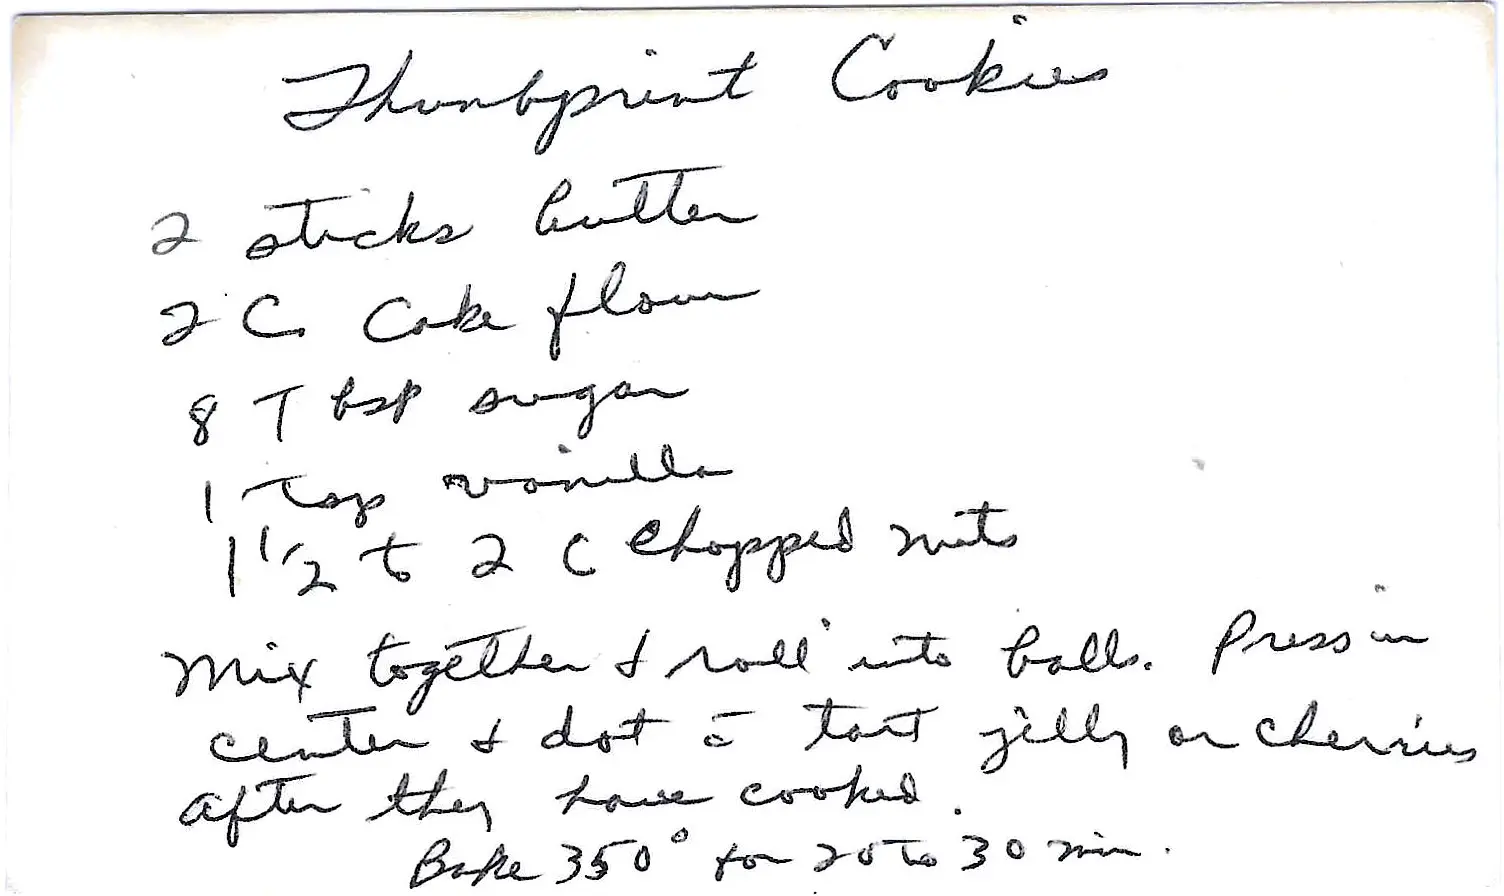 Thumbprint Cookies
2 sticks butter
2 C. Cake flour
8 Tbsp sugar
1 Tsp vanilla
1 1/2 to 2 C Chopped nuts
Mix together & roll into balls. Press in
center & dot c̄ tart jelly or cherries
after they have cooked.
Bake 350° for 20 to 30 min.